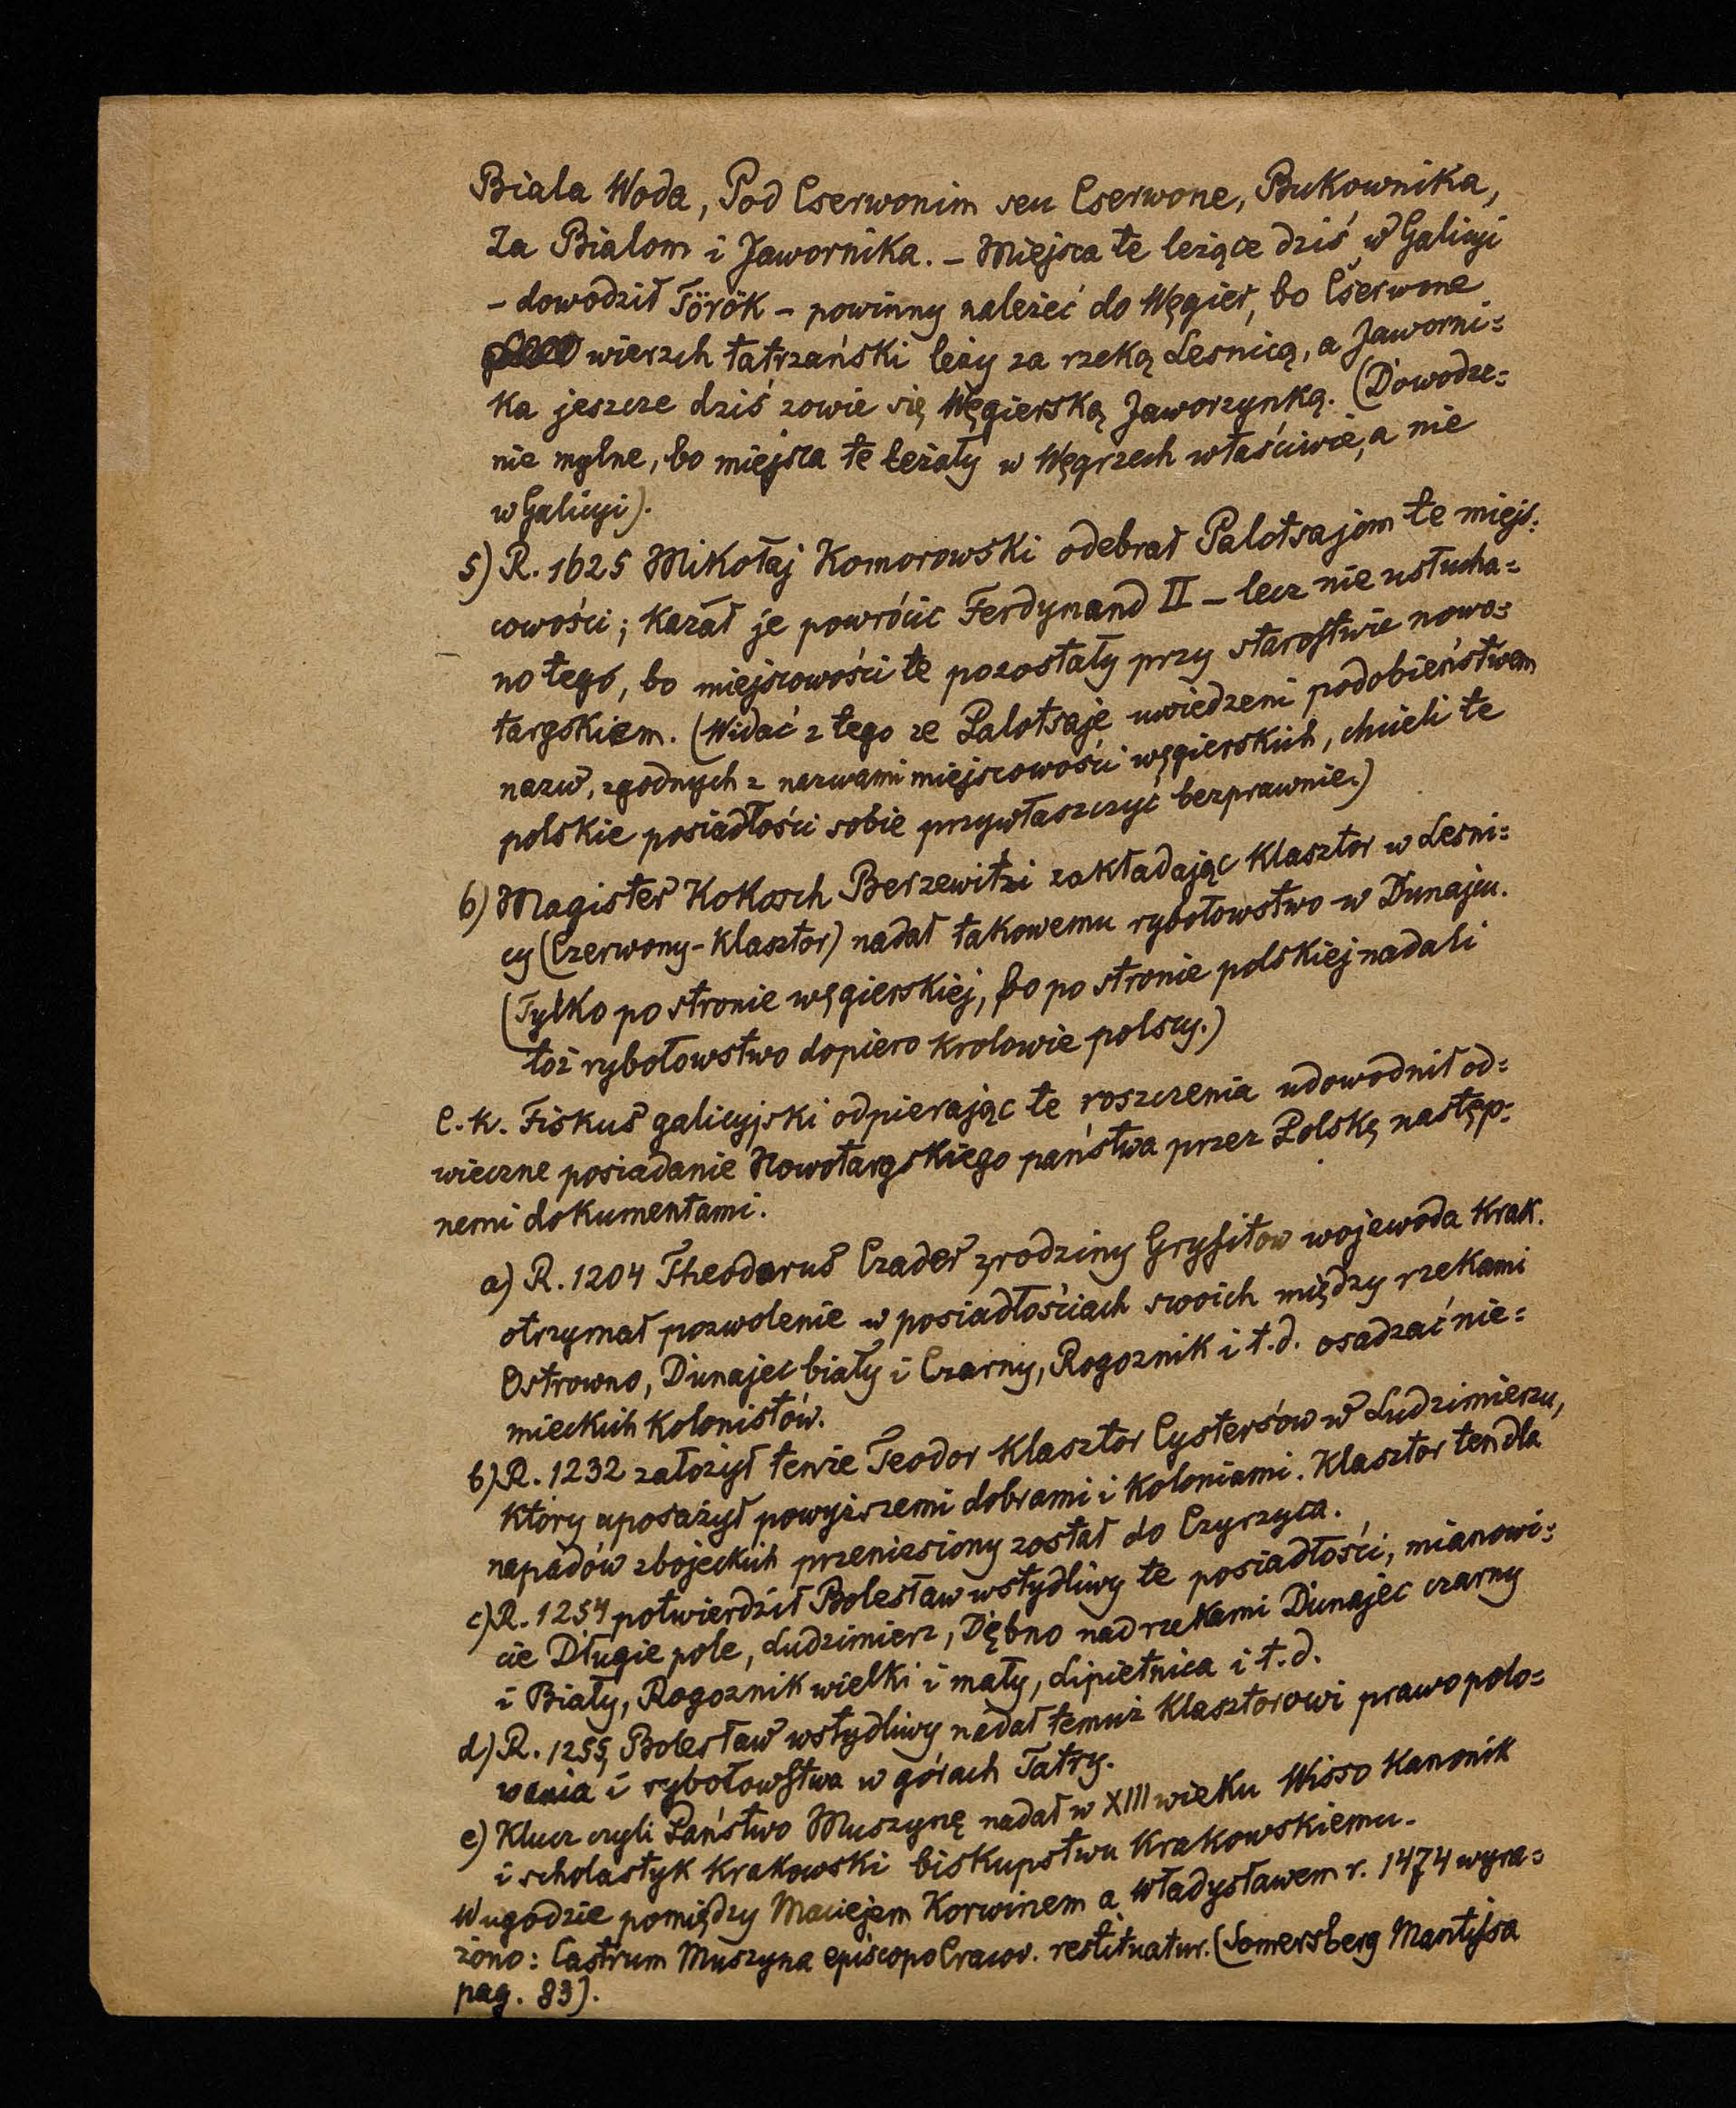 Biala Woda, Pod Cserwonim seu Cserwone, Bukownika,
Za Bialom i Jawornika. – Miejsca te leżące dziś w Galicyi
– dowodził Török – powinny należeć do Węgier, bo Cserwone
wierzch tatrzański leży za rzeką Lesnicą, a Jaworni=
ka jeszcze dziś zowie się Węgierską Jaworzynką. (Dowodze=
nie mylne, bo miejsca te leżały w Węgrzech właściwie, a nie
w Galicyi).
5) R. 1625 Mikołaj Komorowski odebrał Palotsajom te miejs=
cowości; kazał je powrócic Ferdynand II – lecz nie usłucha=
no tego, bo miejscowości te pozostały przy starostwie nowo=
targskiem. (Widać z tego ze Palotsaje uwiedzeni podobieństwem
nazw, zgodnych z nazwami miejscowości węgierskich, chcieli te
polskie posiadłości sobie przywłaszczyć bezprawnie.)
6) Magister Kokosch Berzewitzi zakładając klasztor w Lesni=
cy (Czerwony-Klasztor) nadał takowemu rybołowstwo w Dunajcu.
(Tylko po stronie węgierskiej, bo po stronie polskiej nadali
toż rybołowstwo dopiero krolowie polscy.)
C. k. Fiskus galicyjski odpierając te roszczenia udowodnił od=
wieczne posiadanie Nowotargskiego państwa przez Polskę następ=
nemi dokumentami.
a) R. 1204 Theodorus Czader z rodziny Gryfitow wojewoda krak.
otrzymał pozwolenie w posiadłościach swoich między rzekami
Ostrowno, Dunajec biały i Czarny, Rogoznik i t. d. osadzać nie=
mieckich kolonistów.
b) R. 1232 założył tenże Teodor klasztor Cystersów w Ludzimierzu,
ktory uposażył powyższemi dobrami i koloniami. Klasztor ten dla
napadów zbojeckich przeniesiony został do Czyrzyca.
c) R. 1254 potwierdził Bolesław wstydliwy te posiadłości, mianowi=
cie Długie pole, Ludzimierz, Dębno nad rzekami Dunajec czarny
i Biały, Rogoznik wielki i mały, Lipietnica i t. d.
d) R. 1255, Bolesław wstydliwy nadał temuż Klasztorowi prawo polo=
wania i rybołowstwa w górach Tatry.
e) Klucz czyli Państwo Muszynę nadał w XIII wieku Wisso kanonik
i scholastyk krakowski biskupstwu krakowskiemu.
W ugodzie pomiędzy Maciejem Korwinem a Władysławem r. 1474 wyra=
żono: Castrum Muszyna episcopo Cracov. restituatur. (Somersberg Mantissa
pag. 83).